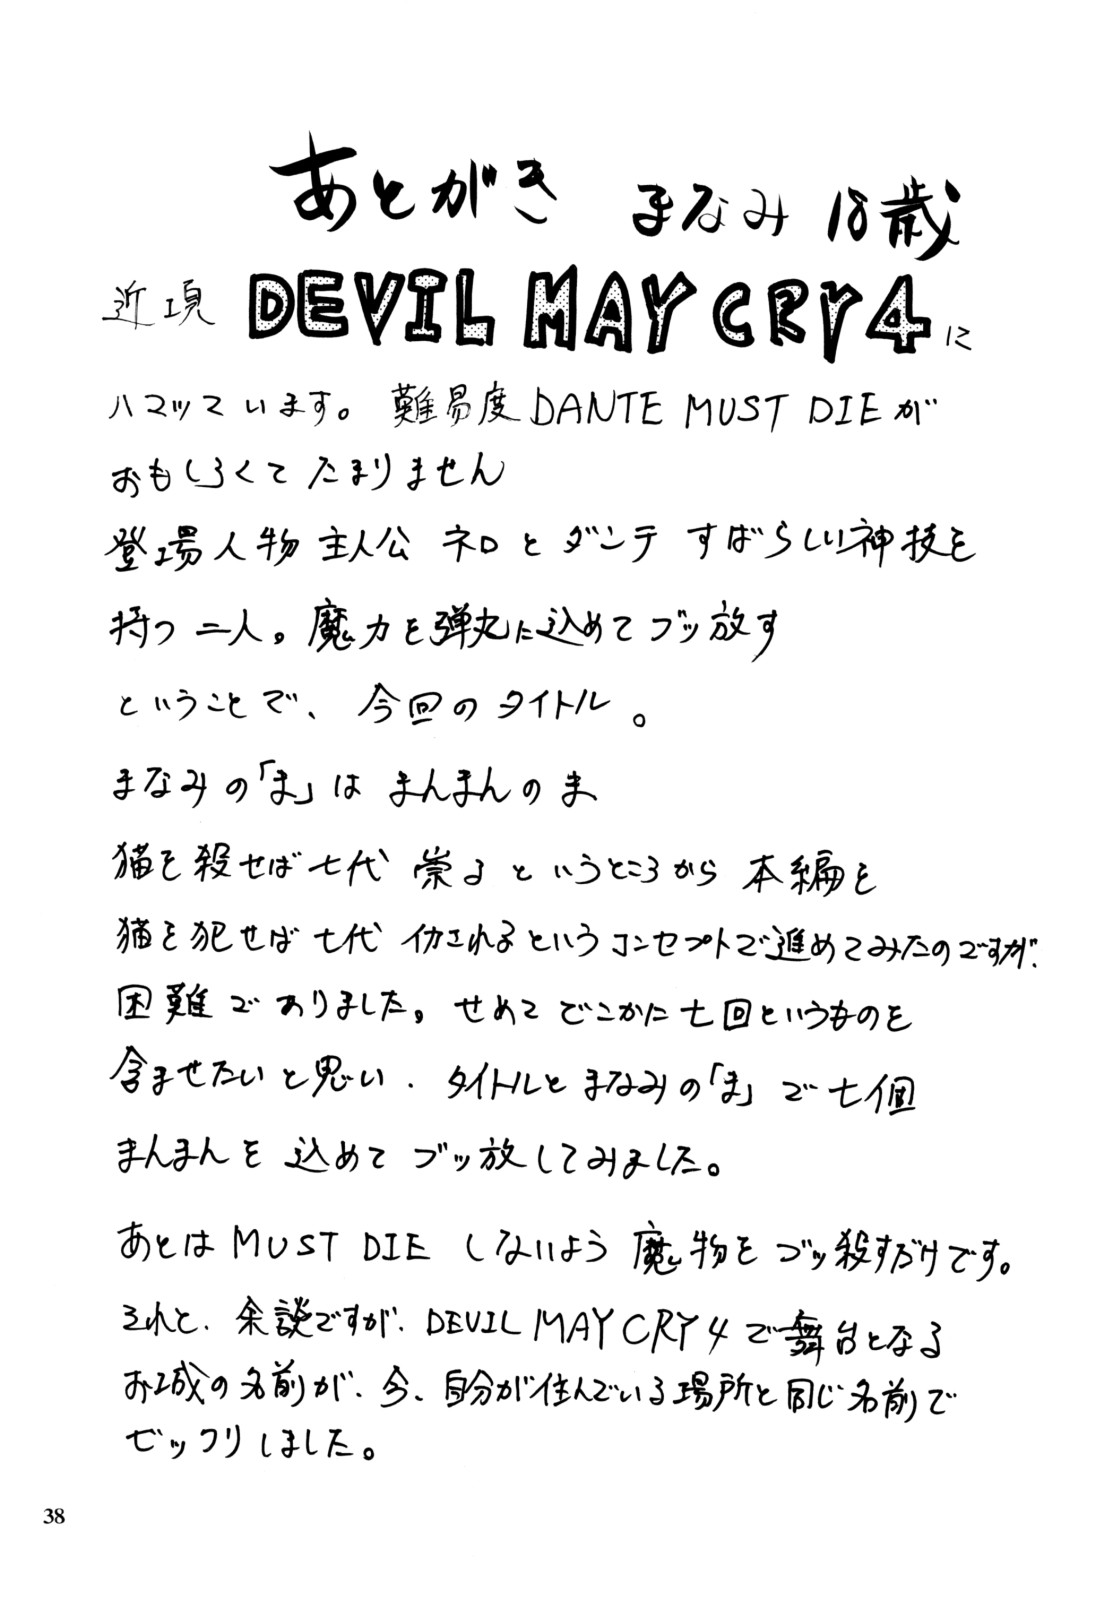 あとがき まなみ 18歳
近頃 DEVIL MAY CRY 4 に
ハマッています。 難易度 DANTE MUST DIE が
おもしろくて たまりません
登場人物 主人公 ネロ と ダンテ すばらしい神技を
持つ 二人。魔力を弾丸に込めてブッ放す
ということで、 今回のタイトル 。
まなみの「ま」は まんまんのま
猫を殺せば七代 祟る というところから 本編を
猫を犯せば 七代 イカされるというコンセプトで進めてみたのですが、
困難でありました。せめて どこかに七回というものを
含ませたいと思い、 タイトルと まなみの「ま」で七個
まんまんを 込めて ブッ放してみました。
あとは MUST DIE しないよう 魔物を ブッ殺すだけです。
それと、余談ですが、DEVIL MAY CRY 4 で舞台となる
お城の名前が、今、自分が住んでいる場所と同じ名前で
ビックリしました。
38